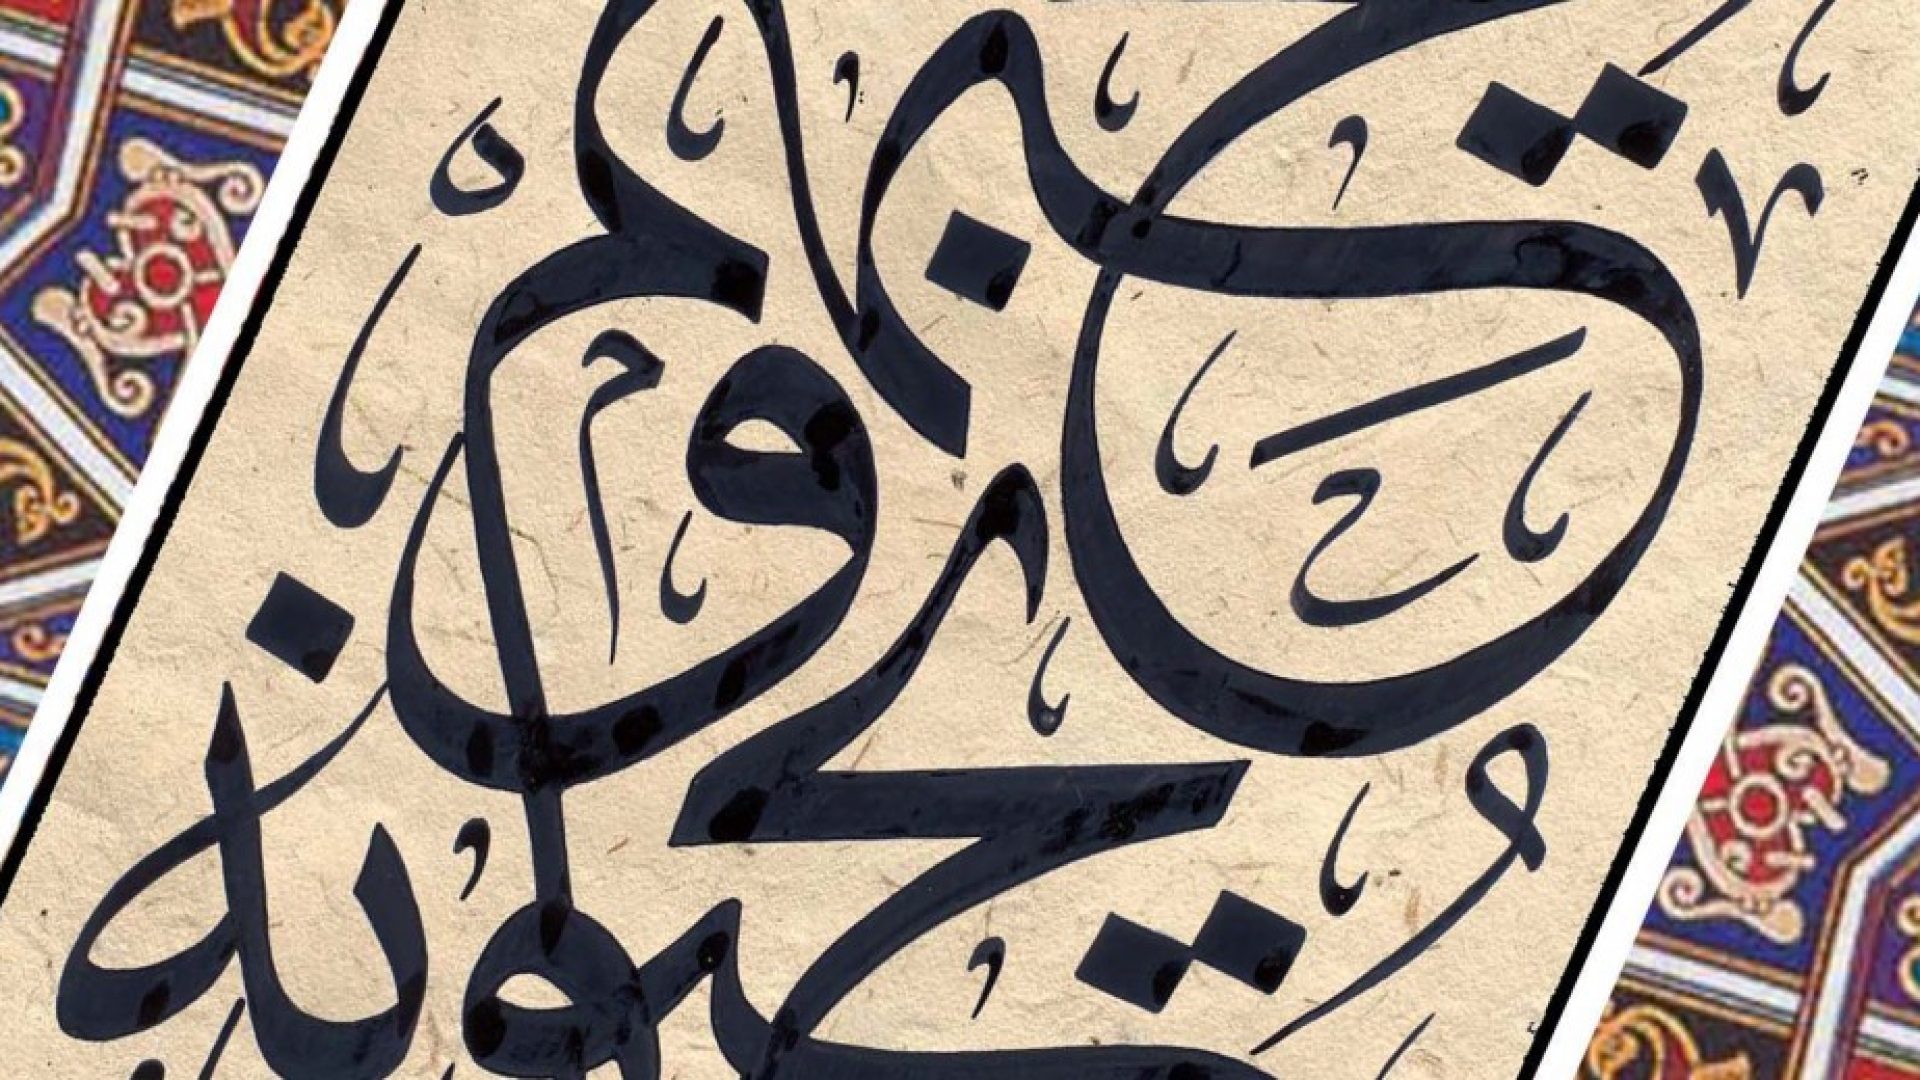 يحبهم
ويحبونه